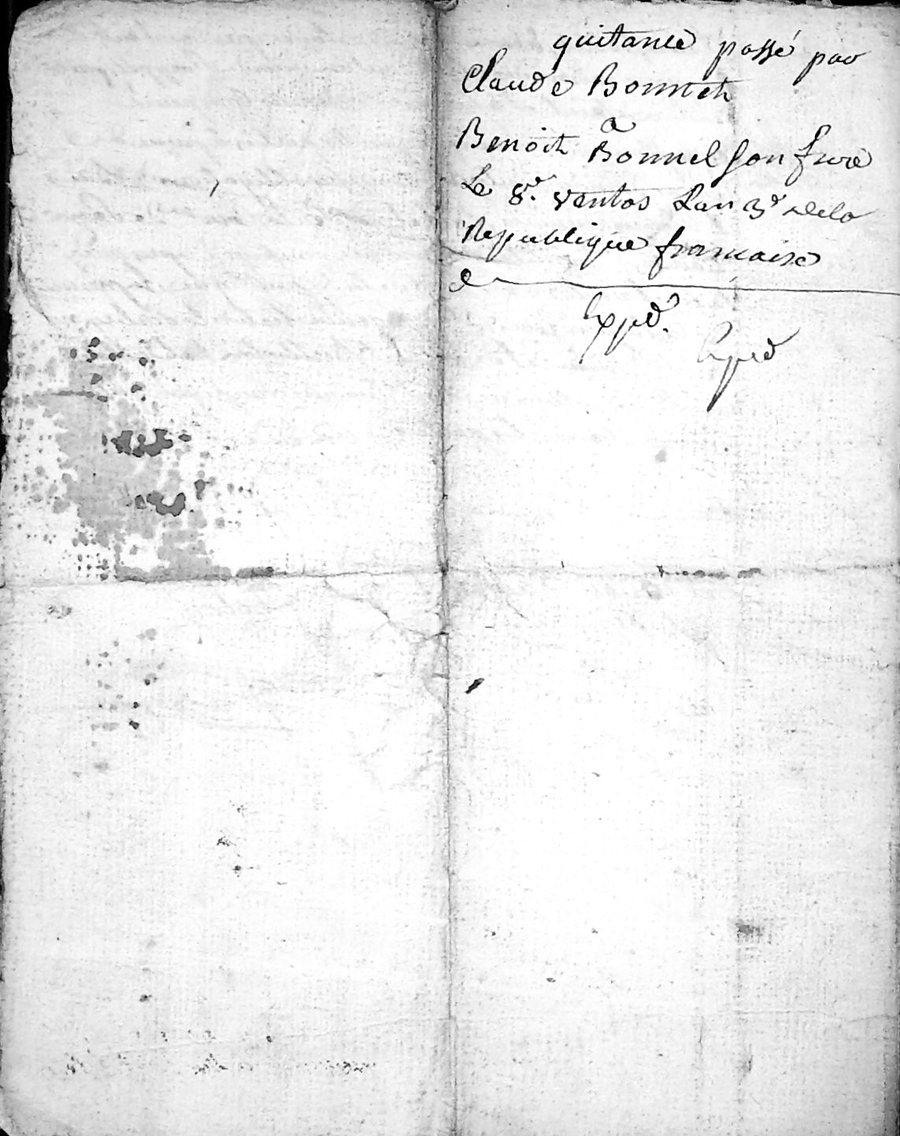 quitance passé par
Claude Bonnet
a
Benoit Bonnel son frere
Le 8e. ventos Lan 3e dela
Republique francaise
Expd.
Expd